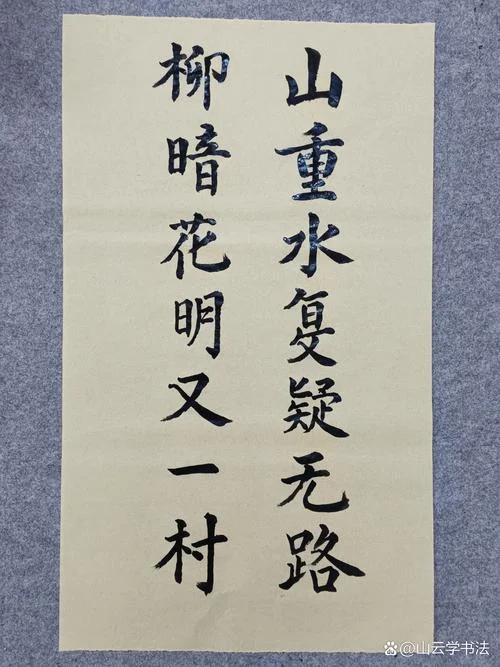 山重水复疑无路
柳暗花明又一村
@山云学书法